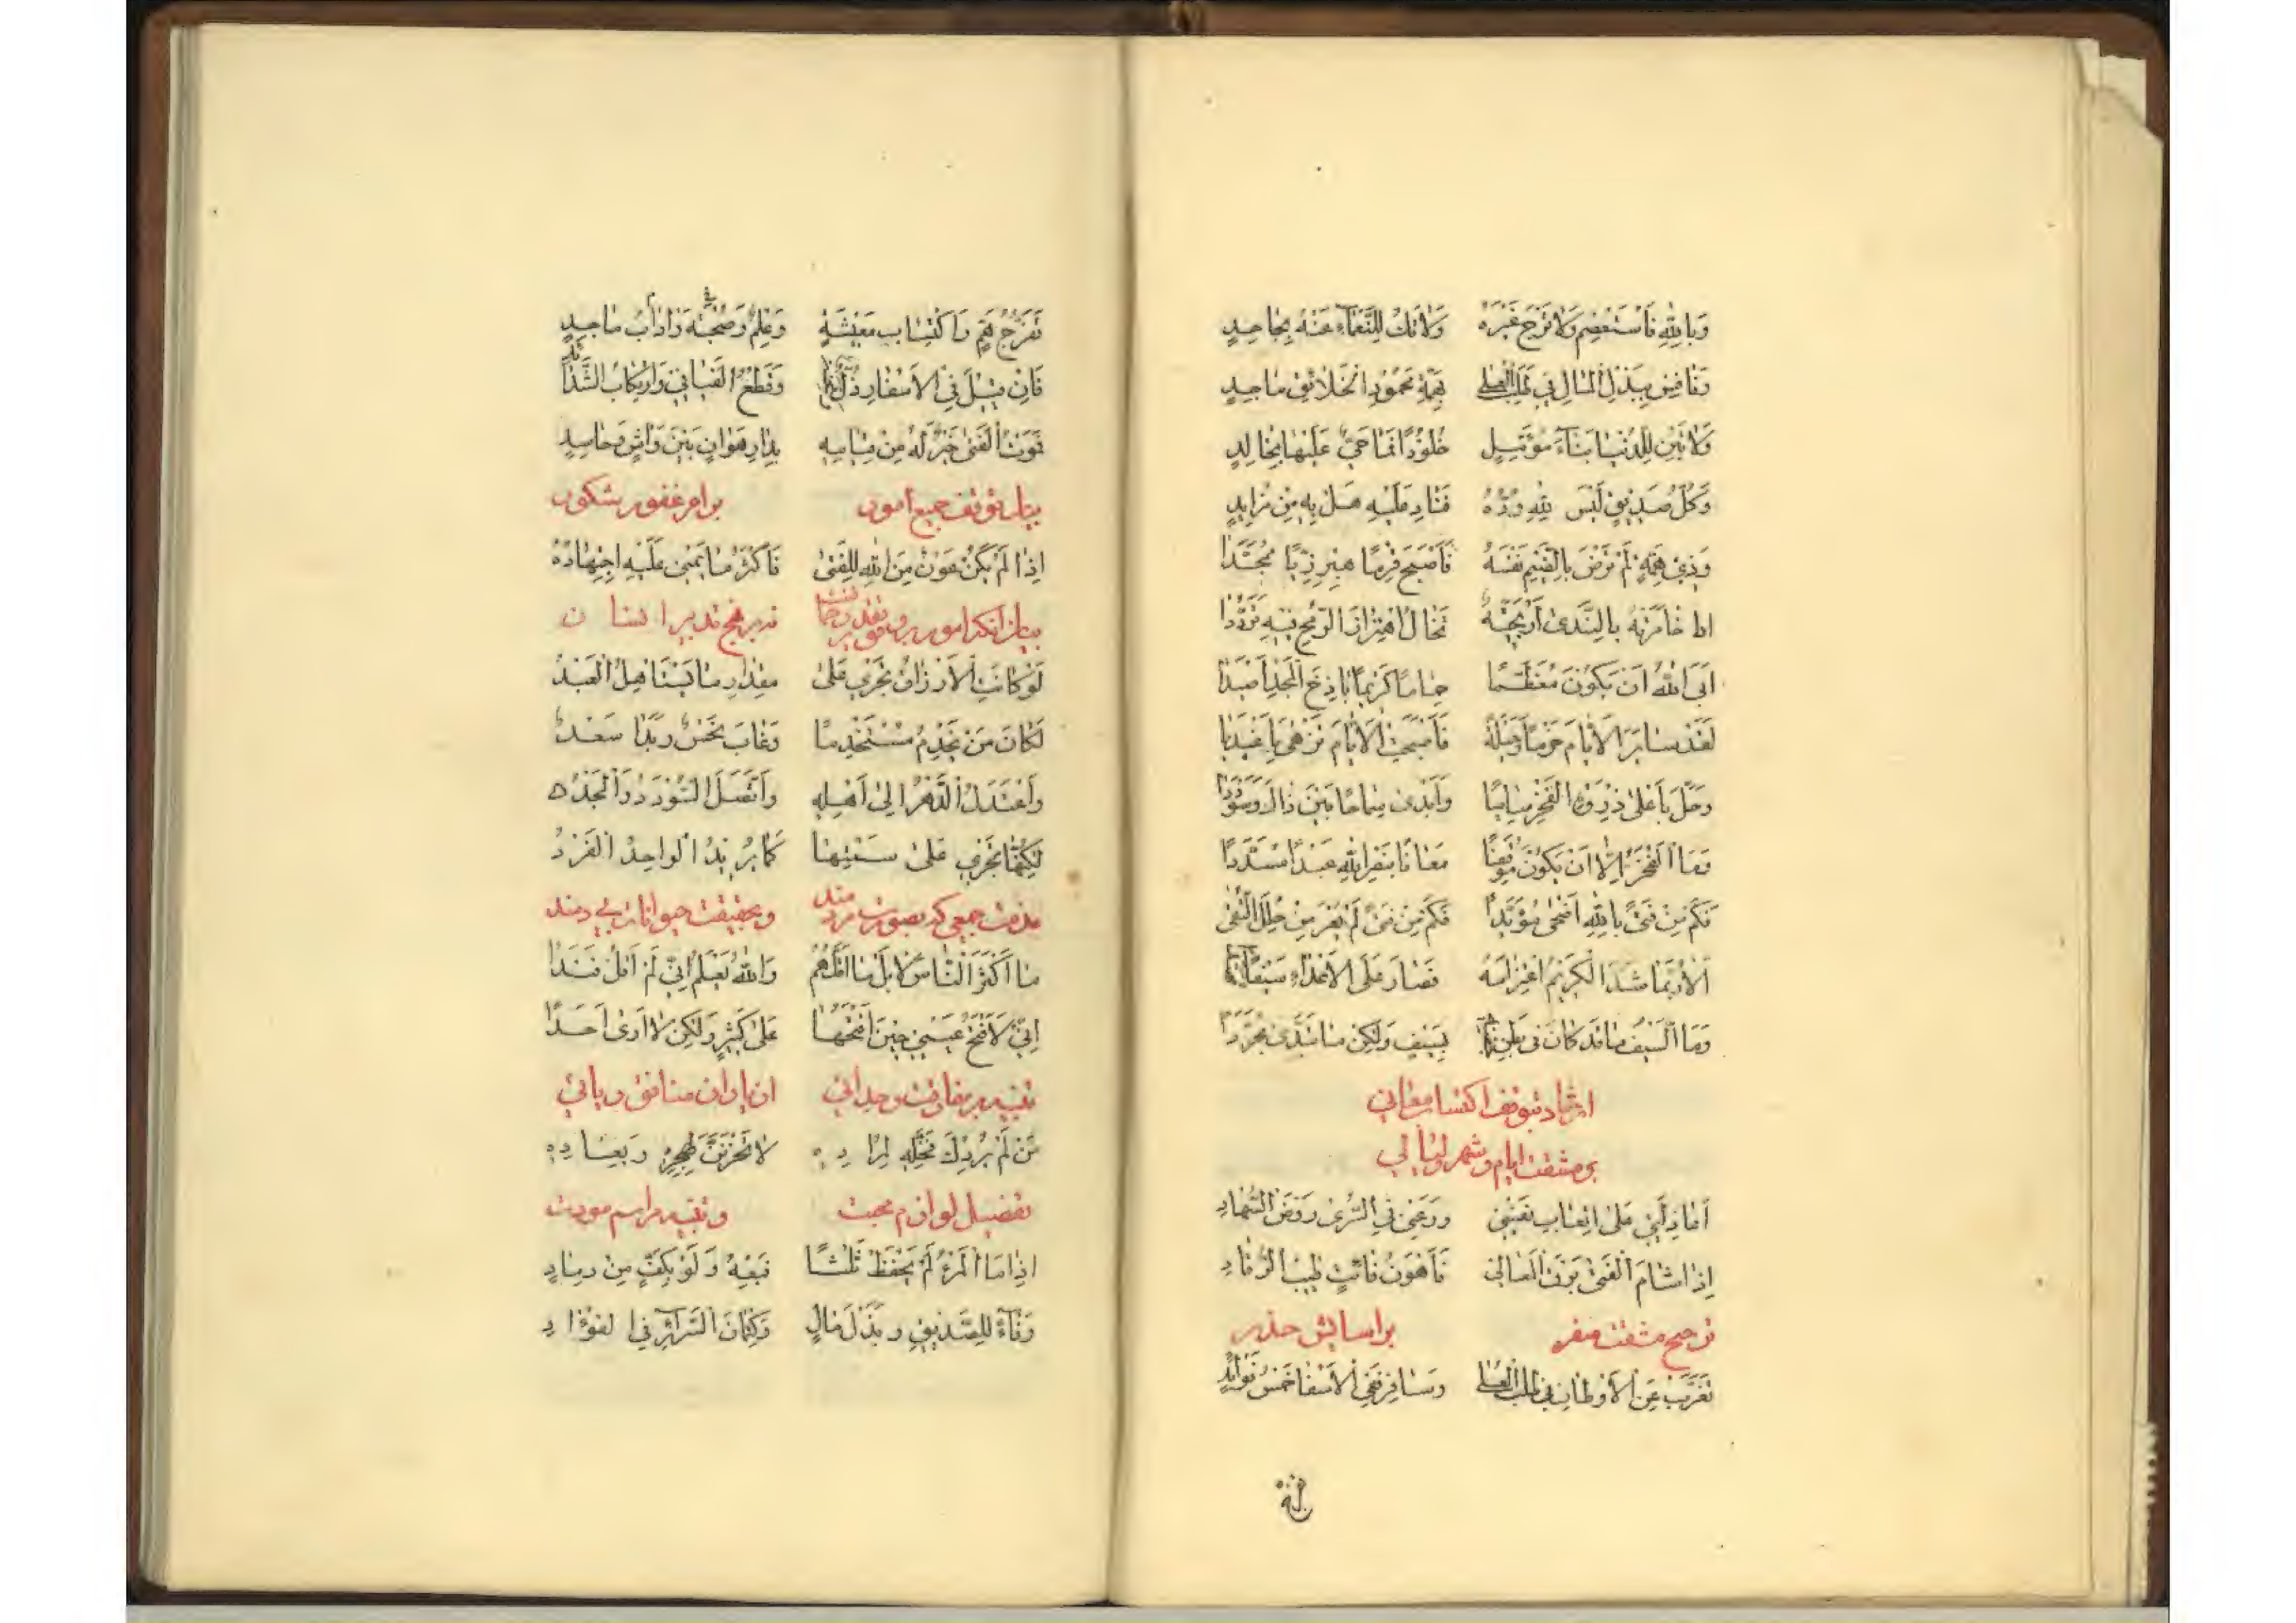 وَبِاللهِ فَاسْتَعْصِمْ وَلَا تَرْجُ غَيْرَهُ وَلَا تَكُ لِلنَّعْمَاءِ عَنْهُ بِجَاحِدٍ
وَنَافِسْ بِبَذْلِ الْمَالِ فِي طَلَبِ الْعُلَى بِهِمَّةِ مَحْمُودِ الْخَلَائِقِ مَاجِدٍ
وَلَا تَبْنِ لِلدُّنْيَا بِنَاءَ مُؤَمِّلٍ خُلُودًا فَمَا حَيٌّ عَلَيْهَا بِخَالِدٍ
وَكُلُّ صَدِيقٍ لَيْسَ لِلّٰهِ وُدُّهُ فَنَادِ عَلَيْهِ هَلْ بِهِ مِنْ مُزَايِدٍ
وَذِي هِمَّةٍ لَمْ تَرْضَ بِالضَّيْمِ نَفْسُهُ فَأَصْبَحَ قَرْمًا هِبْرِزِيًّا مُمَجَّدًا
اذا خَامَرَتْهُ بِالنَّدَى أَرْيَحِيَّةٌ تَخَالُ اهْتِزَازَ الرُّمْحِ فِيهِ تَرَدُّدًا
ابَى اللهُ انْ يَكُونَ مُعَظَّمًا هُمَامًا كَرِيمًا بَاذِخَ الْمَجْدِ أَصْيَدَا
لَقَدْ سَايَرَ الْأَيَّامَ حَزْمًا وَحِيلَةً فَأَصْبَحَتِ الْأَيَّامُ تُزْهَى بِأَغْيَدَا
وَحَلَّ بِأَعْلَى ذِرْوَةِ الْفَخْرِ سَامِيًا وَأَبْدَى سَمَاحًا بَيْنَ ذَاكَ وَسُؤْدَدَا
وَمَا الْفَخْرُ إِلَّا انْ يَكُونَ مُوَفَّقًا مُعَانًا بِنَصْرِ اللهِ عَبْدًا مُسَدَّدًا
فَكَمْ مِنْ فَتًى بِاللهِ أَضْحَى مُؤَيَّدًا فَكَمْ مِنْ فَتًى لَمْ يَعْرَ مِنْ حُلَلِ التُّقَى
أَلَا رُبَّمَا شَدَّ الْكَرِيمُ اعْتِزَامَهُ فَصَارَ عَلَى الْأَعْدَاءِ سَيْفًا
وَمَا السَّيْفُ مَا قَدْ كَانَ فِي بَطْنِ بِسَيْفٍ وَلَكِنْ مَا تَبَدَّى مُجَرَّدَا
ارشاد بتوقف اکتساب معالی
بر مشقت ایام و سهر لیالی
أَعَاذِلَتِي عَلَى إِتْعَابِ نَفْسِي وَرَعْيِي فِي السُّرَى رَوْضَ السُّهَادِ
إِذَا شَامَ الْفَتَى بَرْقَ الْمَعَالِي فَأَهْوَنُ فَائِتٍ طِيبُ الرُّقَادِ
ترجیح مشقت سفر بر اسایش حضر
تَغَرَّبْ عَنِ الْأَوْطَانِ فِي طَلَبِ الْعُلَى وَسَافِرْ فَفِي الْأَسْفَارِ خَمْسُ فَوَائِدِ
تَفَرُّجُ هَمٍّ وَاكْتِسَابُ مَعِيشَةٍ وَعِلْمٌ وَصُحْبَةٌ وَآدَابُ مَاجِدٍ
فَإِنْ قِيلَ فِي الْأَسْفَارِ ذُلٌّ وَقَطْعُ الْفَيَافِي وَارْتِكَابُ الشَّدَائِدِ
فَمَوْتُ الْفَتَى خَيْرٌ لَهُ مِنْ قِيَامِهِ بِدَارِ هَوَانٍ بَيْنَ وَاشٍ وَحَاسِدٍ
بیان توقف جمیع امور بر امر غفور شکور
إِذَا لَمْ يَكُنْ عَوْنٌ مِنَ اللهِ لِلْفَتَى فَأَكْثَرُ مَا يَجْنِي عَلَيْهِ اجْتِهَادُهُ
بیان انکه امور بر وفق تقدیر خداست نه بر نهج تدبیر انسان
لَوْ كَانَتِ الْأَرْزَاقُ تَجْرِي عَلَى مِقْدَارِ مَا يَسْتَأْهِلُ الْعَبْدُ
لَكَانَ مَنْ يُخْدَمُ مُسْتَخْدِمًا وَغَابَ نَحْسٌ وَبَدَا سَعْدٌ
وَاعْتَدَلَ الدَّهْرُ إِلَى أَهْلِهِ وَاتَّصَلَ السُّؤْدَدُ وَالْمَجْدُ
لَكِنَّهَا تَجْرِي عَلَى سَمْتِهَا كَمَا يُرِيدُ الْوَاحِدُ الْفَرْدُ
مذمت جمعی که بصورت مردمند و بحقیقت حیوانات بی دمند
مَا أَكْثَرَ النَّاسَ لَا بَلْ مَا أَقَلَّهُمْ وَاللهُ يَعْلَمُ أَنِّي لَمْ أَقُلْ فَنَدَا
إِنِّي لَأَفْتَحُ عَيْنِي حِينَ أَفْتَحُهَا عَلَى كَثِيرٍ وَلَكِنْ لَا أَرَى أَحَدًا
تنبیه بر مفارقت و جدائی از یاران منافق و ریائی
مَنْ لَمْ يُرِدْكَ فَخَلِّهِ لِمُرَادِهِ لَا تَحْزَنَنَّ لِهَجْرِهِ وَبِعَادِهِ
تفصیل لوازم محبت و تنبیه مراسم مودت
إِذَا مَا الْمَرْءُ لَمْ يَحْفَظْ ثَلَاثًا فَبِعْهُ وَلَوْ بِكَفٍّ مِنْ رَمَادٍ
وَفَاءٌ لِلصَّدِيقِ وَبَذْلُ مَالٍ وَكِتْمَانُ السَّرَائِرِ فِي الْفُؤَادِ